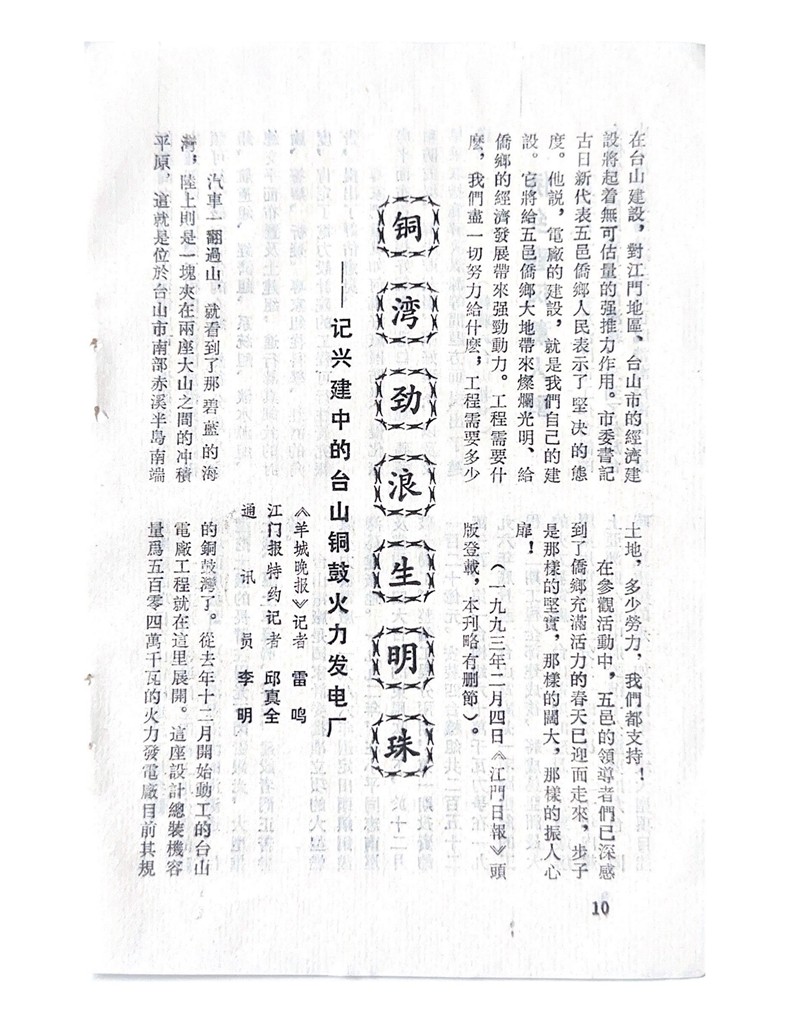 在台山建設，對江門地區、台山市的經濟建
設將起着無可估量的强推力作用。市委書記
古日新代表五邑僑鄉人民表示了堅決的態
度。他説，電廠的建設，就是我們自己的建
設。它將給五邑僑鄉大地帶來燦爛光明、給
僑鄉的經濟發展帶來强勁動力。工程需要什
麽，我們盡一切努力給什麽，工程需要多少
土地，多少勞力，我們都支持！
在參觀活動中，五邑的領導者們已深感
到了僑鄉充滿活力的春天已迎面走來，步子
是那樣的堅實，那樣的闊大，那樣的振人心
扉！
（一九九三年二月四日《江門日報》頭
版登載，本刊略有删節）。
铜湾劲浪生明珠
——记兴建中的台山铜鼓火力发电厂
《羊城晚报》记者 雷鸣
江门报特约记者 邱真全
通讯员 李明
汽車一翻過山，就看到了那碧藍的海
灣，陸上則是一塊夾在兩座大山之間的冲積
平原，這就是位於台山市南部赤溪半島南端
的銅鼓灣了。從去年十二月開始動工的台山
電廠工程就在這里展開。這座設計總裝機容
量爲五百零四萬千瓦的火力發電廠目前其規
10